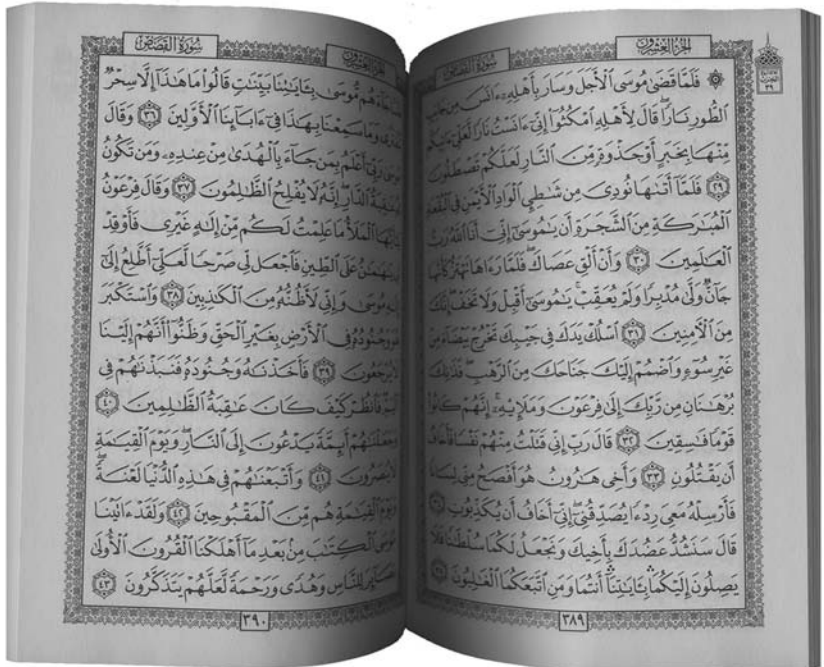 الجزء العشرون
سورة القصص
۞ فَلَمَّا قَضَىٰ مُوسَى ٱلْأَجَلَ وَسَارَ بِأَهْلِهِۦٓ ءَانَسَ مِن جَانِبِ
ٱلطُّورِ نَارًا قَالَ لِأَهْلِهِ ٱمْكُثُوٓا۟ إِنِّىٓ ءَانَسْتُ نَارًا لَّعَلِّىٓ ءَاتِيكُم
مِّنْهَا بِخَبَرٍ أَوْ جَذْوَةٍ مِّنَ ٱلنَّارِ لَعَلَّكُمْ تَصْطَلُونَ
٢٩ فَلَمَّآ أَتَىٰهَا نُودِىَ مِن شَٰطِئِ ٱلْوَادِ ٱلْأَيْمَنِ فِى ٱلْبُقْعَةِ
ٱلْمُبَٰرَكَةِ مِنَ ٱلشَّجَرَةِ أَن يَٰمُوسَىٰٓ إِنِّىٓ أَنَا ٱللَّهُ رَبُّ
ٱلْعَٰلَمِينَ ٣٠ وَأَنْ أَلْقِ عَصَاكَ فَلَمَّا رَءَاهَا تَهْتَزُّ كَأَنَّهَا
جَآنٌّ وَلَّىٰ مُدْبِرًا وَلَمْ يُعَقِّبْ يَٰمُوسَىٰٓ أَقْبِلْ وَلَا تَخَفْ إِنَّكَ
مِنَ ٱلْءَامِنِينَ ٣١ ٱسْلُكْ يَدَكَ فِى جَيْبِكَ تَخْرُجْ بَيْضَآءَ مِنْ
غَيْرِ سُوٓءٍ وَٱضْمُمْ إِلَيْكَ جَنَاحَكَ مِنَ ٱلرَّهْبِ فَذَٰنِكَ
بُرْهَٰنَانِ مِن رَّبِّكَ إِلَىٰ فِرْعَوْنَ وَمَلَإِي۟هِۦٓ إِنَّهُمْ كَانُوا۟
قَوْمًا فَٰسِقِينَ ٣٢ قَالَ رَبِّ إِنِّى قَتَلْتُ مِنْهُمْ نَفْسًا فَأَخَافُ
أَن يَقْتُلُونِ ٣٣ وَأَخِى هَٰرُونُ هُوَ أَفْصَحُ مِنِّى لِسَانًا
فَأَرْسِلْهُ مَعِىَ رِدْءًا يُصَدِّقُنِىٓ إِنِّىٓ أَخَافُ أَن يُكَذِّبُونِ ٣٤
قَالَ سَنَشُدُّ عَضُدَكَ بِأَخِيكَ وَنَجْعَلُ لَكُمَا سُلْطَٰنًا فَلَا
يَصِلُونَ إِلَيْكُمَا بِـَٔايَٰتِنَآ أَنتُمَا وَمَنِ ٱتَّبَعَكُمَا ٱلْغَٰلِبُونَ ٣٥
٣٨٩
الجزء العشرون
سورة القصص
جَآءَهُم مُّوسَىٰ بِـَٔايَٰتِنَا بَيِّنَٰتٍ قَالُوا۟ مَا هَٰذَآ إِلَّا سِحْرٌ
مُّفْتَرًى وَمَا سَمِعْنَا بِهَٰذَا فِىٓ ءَابَآئِنَا ٱلْأَوَّلِينَ ٣٦ وَقَالَ
مُوسَىٰ رَبِّىٓ أَعْلَمُ بِمَن جَآءَ بِٱلْهُدَىٰ مِنْ عِندِهِۦ وَمَن تَكُونُ
عَٰقِبَةُ ٱلدَّارِ إِنَّهُۥ لَا يُفْلِحُ ٱلظَّٰلِمُونَ ٣٧ وَقَالَ فِرْعَوْنُ
يَٰٓأَيُّهَا ٱلْمَلَأُ مَا عَلِمْتُ لَكُم مِّنْ إِلَٰهٍ غَيْرِى فَأَوْقِدْ
يَٰهَٰمَٰنُ عَلَى ٱلطِّينِ فَٱجْعَل لِّى صَرْحًا لَّعَلِّىٓ أَطَّلِعُ إِلَىٰٓ
إِلَٰهِ مُوسَىٰ وَإِنِّى لَأَظُنُّهُۥ مِنَ ٱلْكَٰذِبِينَ ٣٨ وَٱسْتَكْبَرَ
هُوَ وَجُنُودُهُۥ فِى ٱلْأَرْضِ بِغَيْرِ ٱلْحَقِّ وَظَنُّوٓا۟ أَنَّهُمْ إِلَيْنَا
لَا يُرْجَعُونَ ٣٩ فَأَخَذْنَٰهُ وَجُنُودَهُۥ فَنَبَذْنَٰهُمْ فِى
ٱلْيَمِّ فَٱنظُرْ كَيْفَ كَانَ عَٰقِبَةُ ٱلظَّٰلِمِينَ ٤٠
وَجَعَلْنَٰهُمْ أَئِمَّةً يَدْعُونَ إِلَى ٱلنَّارِ وَيَوْمَ ٱلْقِيَٰمَةِ
لَا يُنصَرُونَ ٤١ وَأَتْبَعْنَٰهُمْ فِى هَٰذِهِ ٱلدُّنْيَا لَعْنَةً
وَيَوْمَ ٱلْقِيَٰمَةِ هُم مِّنَ ٱلْمَقْبُوحِينَ ٤٢ وَلَقَدْ ءَاتَيْنَا
مُوسَى ٱلْكِتَٰبَ مِنۢ بَعْدِ مَآ أَهْلَكْنَا ٱلْقُرُونَ ٱلْأُولَىٰ
بَصَآئِرَ لِلنَّاسِ وَهُدًى وَرَحْمَةً لَّعَلَّهُمْ يَتَذَكَّرُونَ ٤٣
٣٩٠